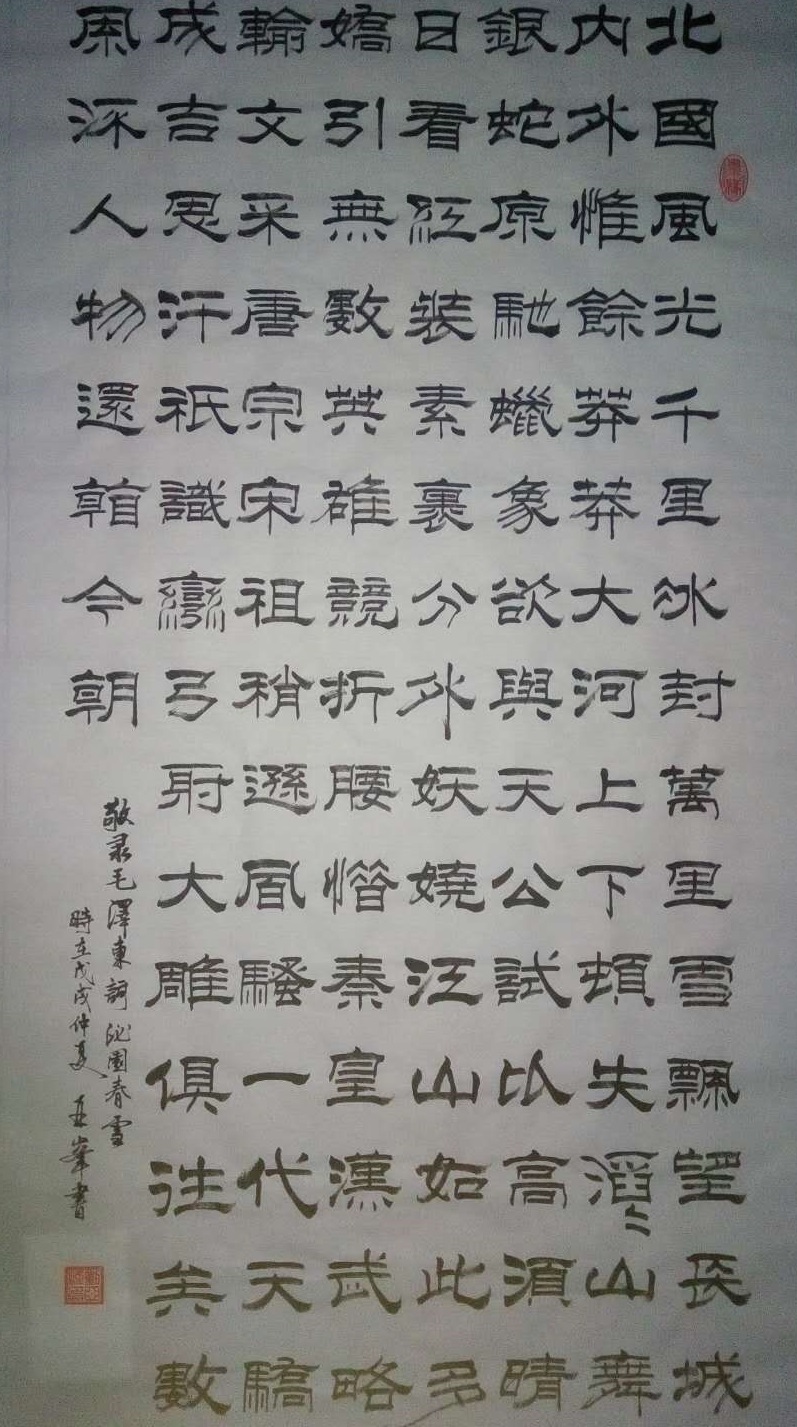 北國風光千里冰封萬里雪飄望長城
内外惟餘莽莽大河上下頓失滔〻山舞
銀蛇原馳蠟象欲與天公試比高須晴
日看紅裝素裹分外妖嬈江山如此多
嬌引無數英雄競折腰惜秦皇漢武略
輸文采唐宗宋祖稍遜風騷一代天驕
成吉思汗祇識彎弓射大雕俱往矣數
風流人物還看今朝
敬录毛澤東詞沁園春雪
時在戊戌仲夏 亚峯書